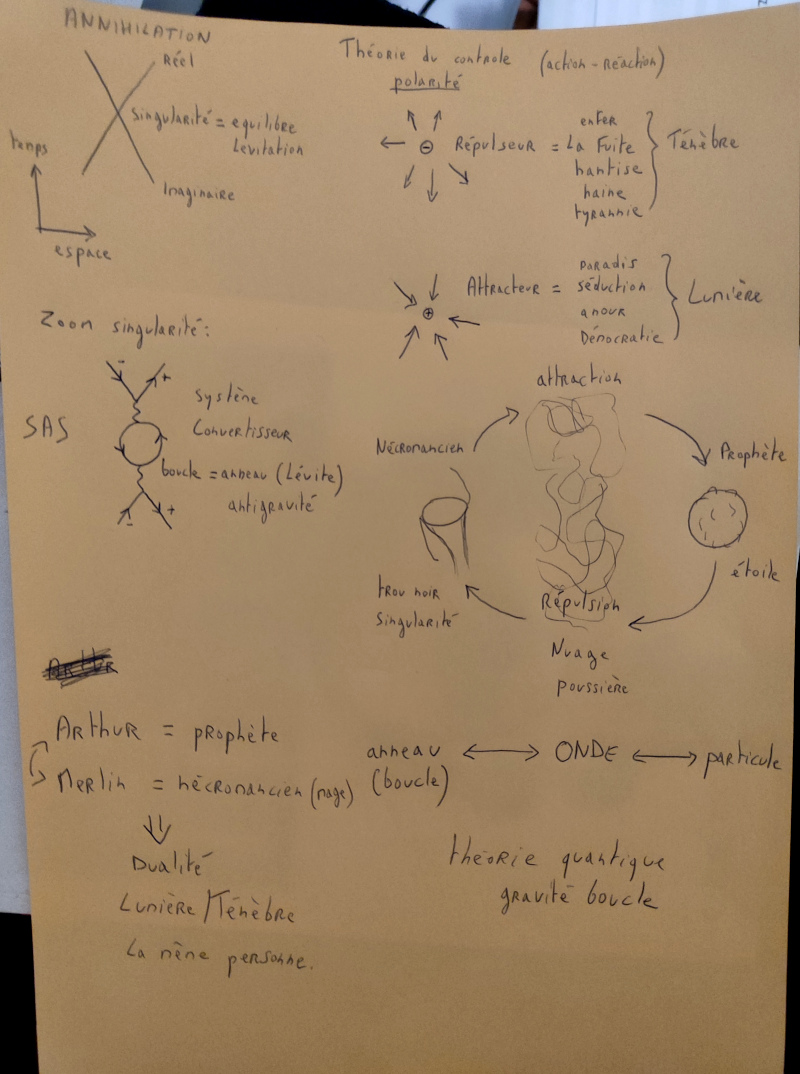 ANNIHILATION
Réel
Singularité = equilibre
Levitation
temps
Imaginaire
espace
Théorie du controle (action - Réaction)
polarité
⊖ Répulseur =
enfer
La Fuite
hantise
haine
tyrannie
Ténèbre
⊕ Attracteur =
paradis
séduction
amour
Démocratie
Lumière
Zoom singularité:
SAS
- +
Système
Convertisseur
boucle = anneau (Lévite)
antigravité
- +
attraction
Nécromancien
Prophète
étoile
trou noir
Singularité
Répulsion
Nuage
poussière
Arthur = prophète
Merlin = nécromancien (mage)
⇓
Dualité
Lumière/Ténèbre
La même personne.
anneau ↔ ONDE ↔ particule
(boucle)
théorie quantique
gravité boucle